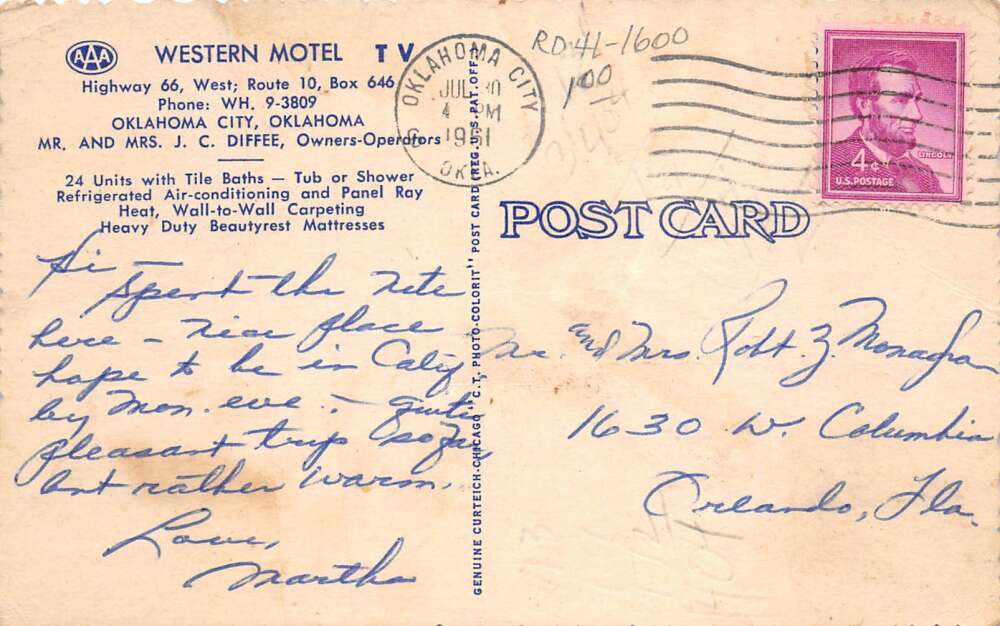 AAA
WESTERN MOTEL TV
Highway 66, West; Route 10, Box 646
Phone: WH. 9-3809
OKLAHOMA CITY, OKLAHOMA
MR. AND MRS. J. C. DIFFEE, Owners-Operators
24 Units with Tile Baths — Tub or Shower
Refrigerated Air-conditioning and Panel Ray
Heat, Wall-to-Wall Carpeting
Heavy Duty Beautyrest Mattresses
Hi —
Spent the nite
here – nice place
hope to be in Calif
by Mon. eve. – quite
pleasant trip so far
but rather warm.
Love,
Martha
GENUINE CURTEICH-CHICAGO "C.T. PHOTO-COLORIT" POST CARD (REG. U.S. PAT. OFF.)
OKLAHOMA CITY
JUL 30
4 PM
1961
OKLA.
RD 41-1600
100
4¢
LINCOLN
U.S. POSTAGE
POST CARD
Mr. and Mrs. Robt. Z. Monagan
1630 W. Columbia
Orlando, Fla.